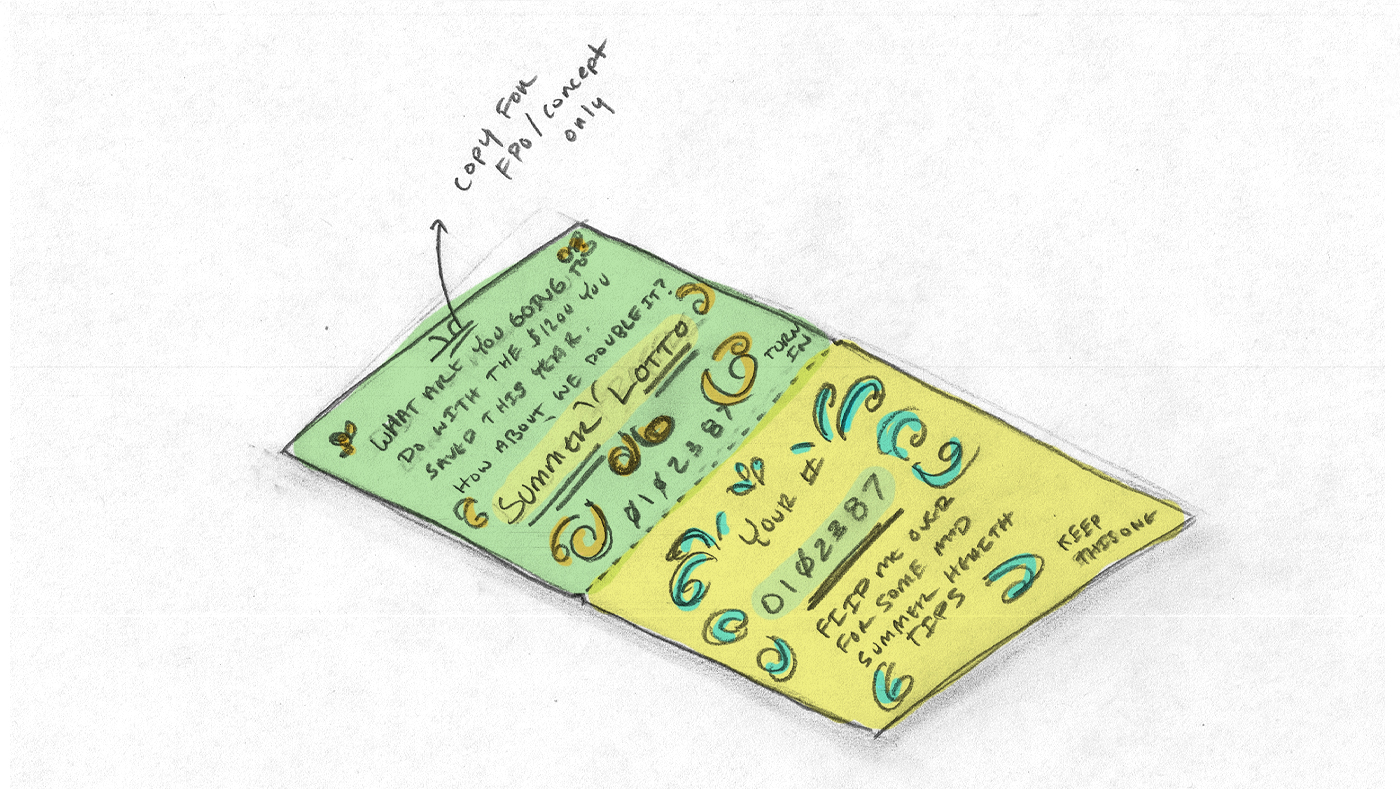 copy For
FPO/concept
only
WHAT ARE YOU GOING TO
DO WITH THE $1200 YOU
SAVED THIS YEAR.
HOW ABOUT WE DOUBLE IT?
SUMMER LOTTO
0102387
TURN
IN
YOUR #
0102387
FLIP ME OVER
FOR SOME MID
SUMMER HEALTH
TIPS
KEEP
THIS ONE